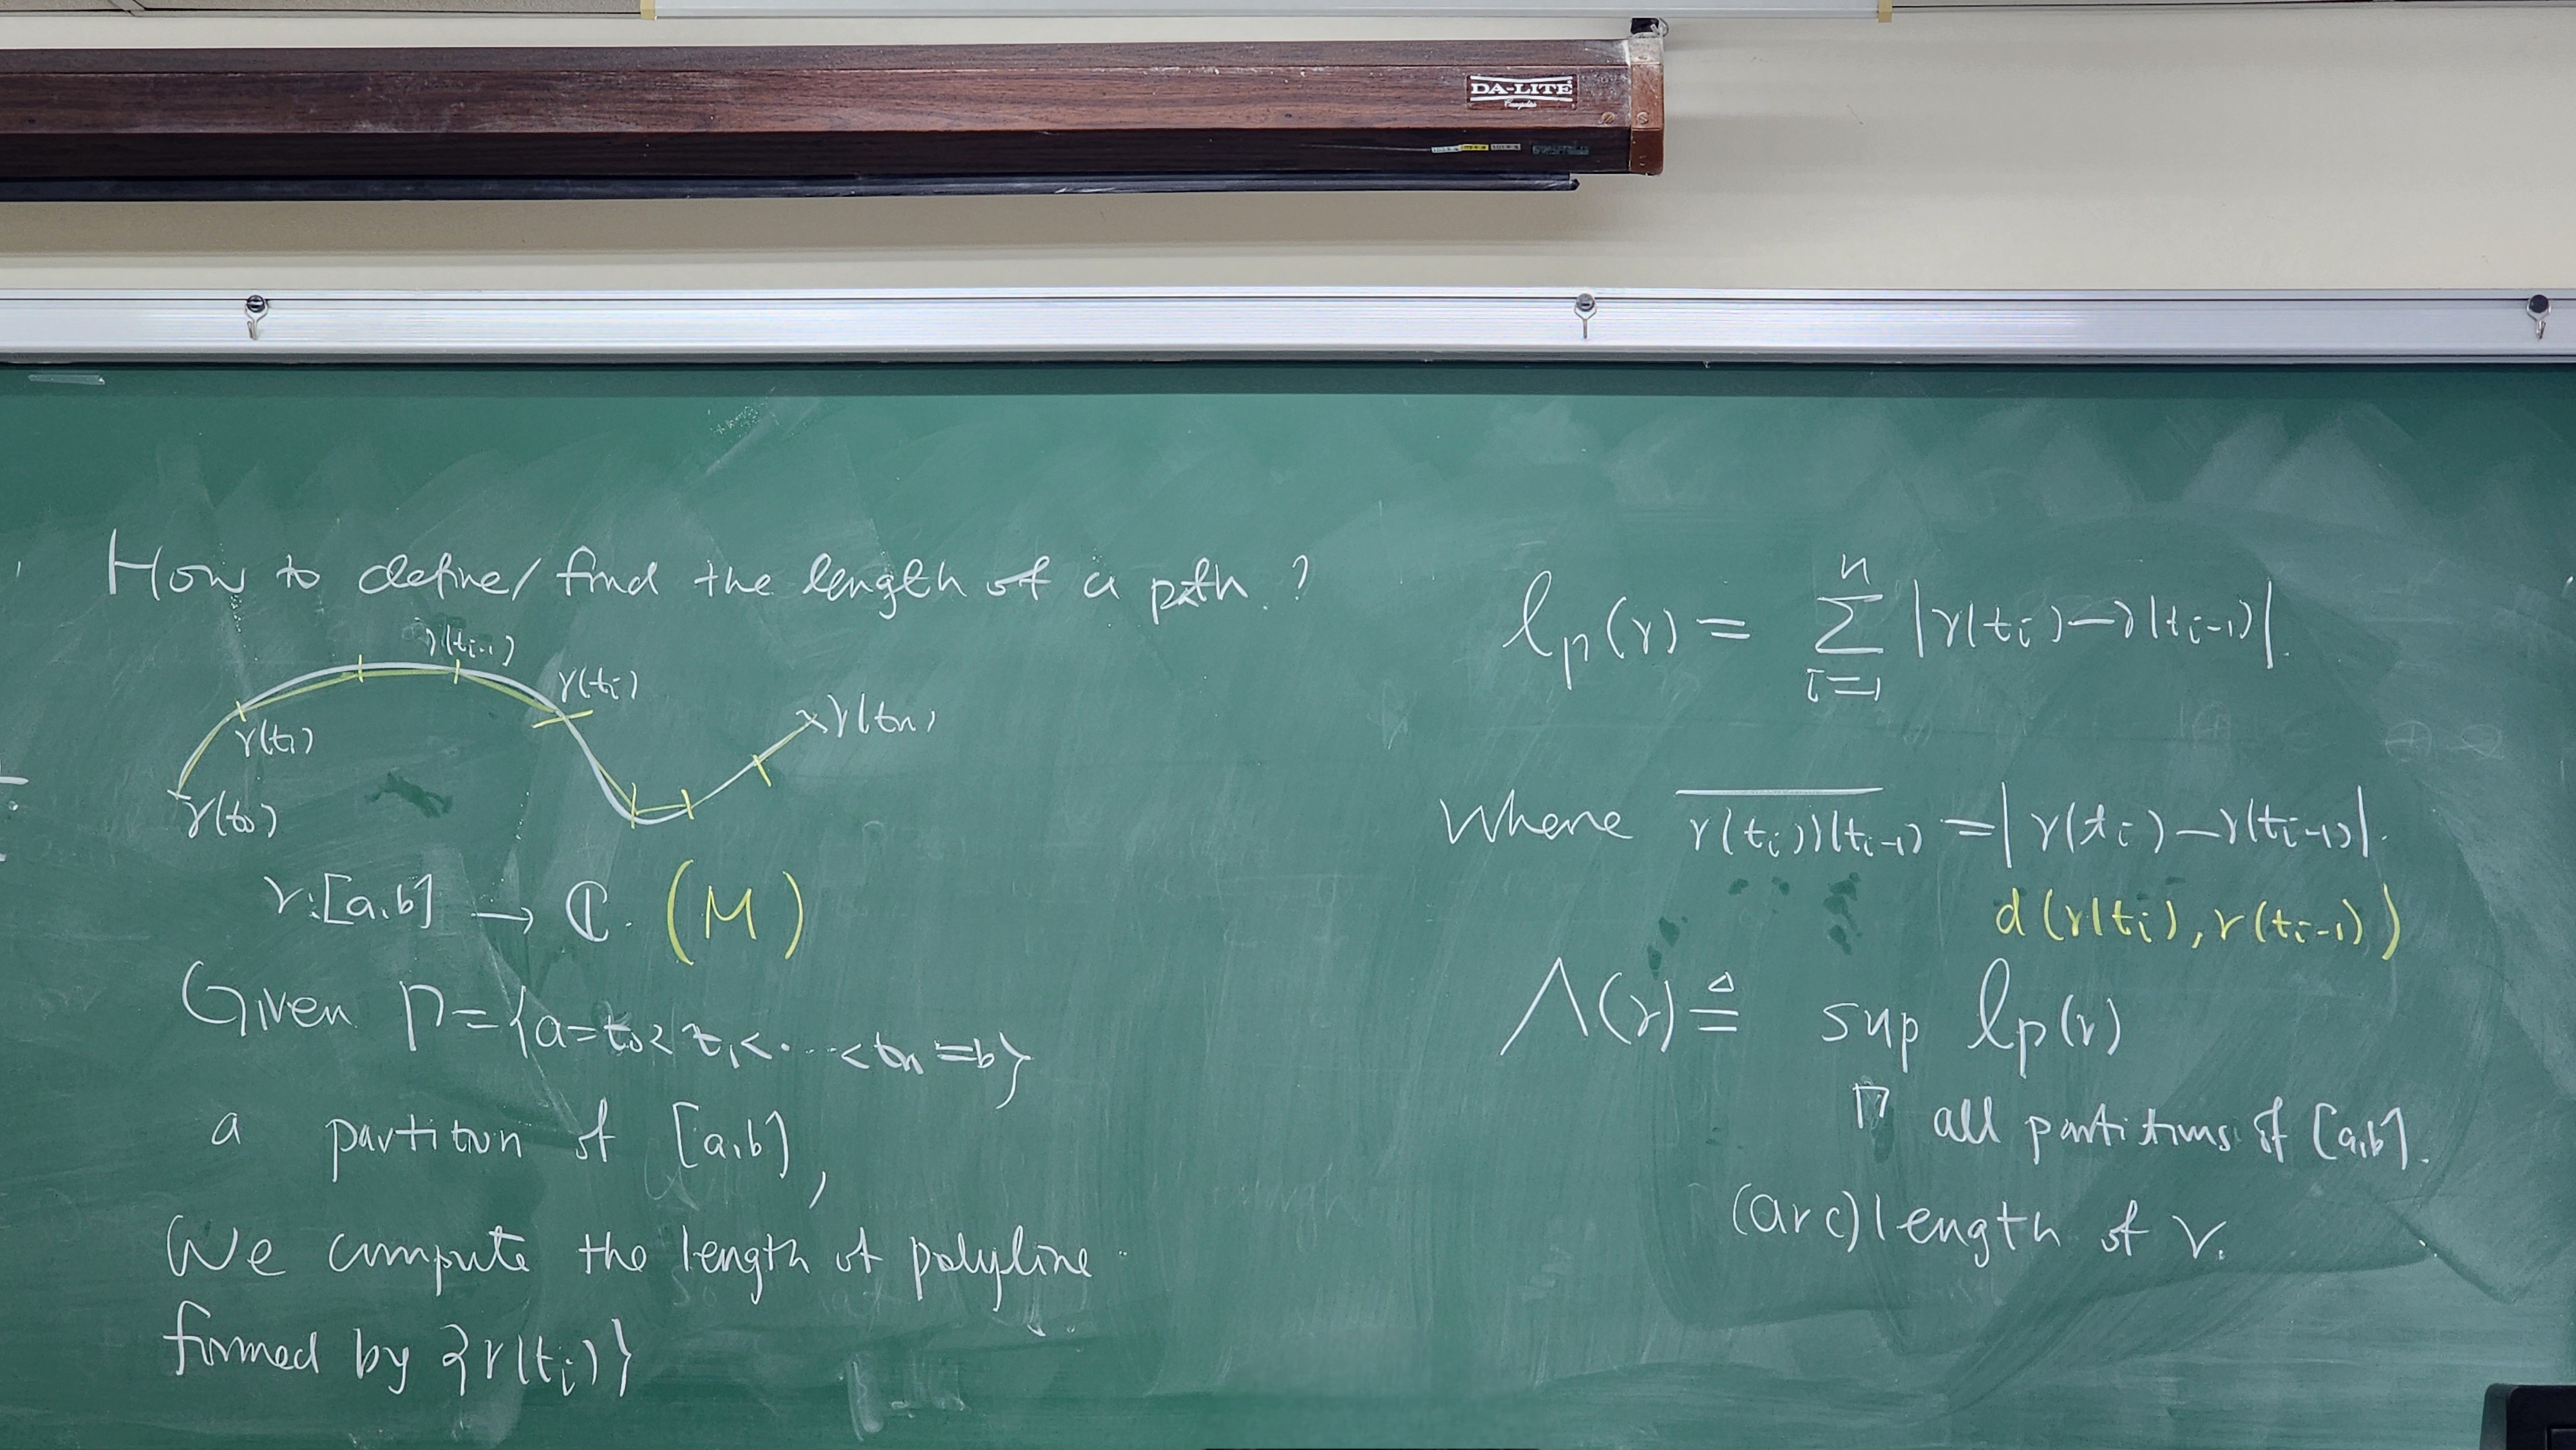 DA-LITE
How to define/find the length of a path?
γ(t₀)
γ(t₁)
γ(tᵢ₋₁)
γ(tᵢ)
γ(tₙ)
γ:[a,b] → ℂ. (M)
Given P={a=t₀<t₁<...<tₙ=b}
a partition of [a,b],
We compute the length of polyline
formed by {γ(tᵢ)}
n
l_P(γ) = Σ |γ(tᵢ)−γ(tᵢ₋₁)|.
i=1
where γ(tᵢ)γ(tᵢ₋₁) = |γ(tᵢ)−γ(tᵢ₋₁)|.
d(γ(tᵢ), γ(tᵢ₋₁))
Λ(γ) ≜ sup l_P(γ)
P all partitions of [a,b].
(arc)length of γ.